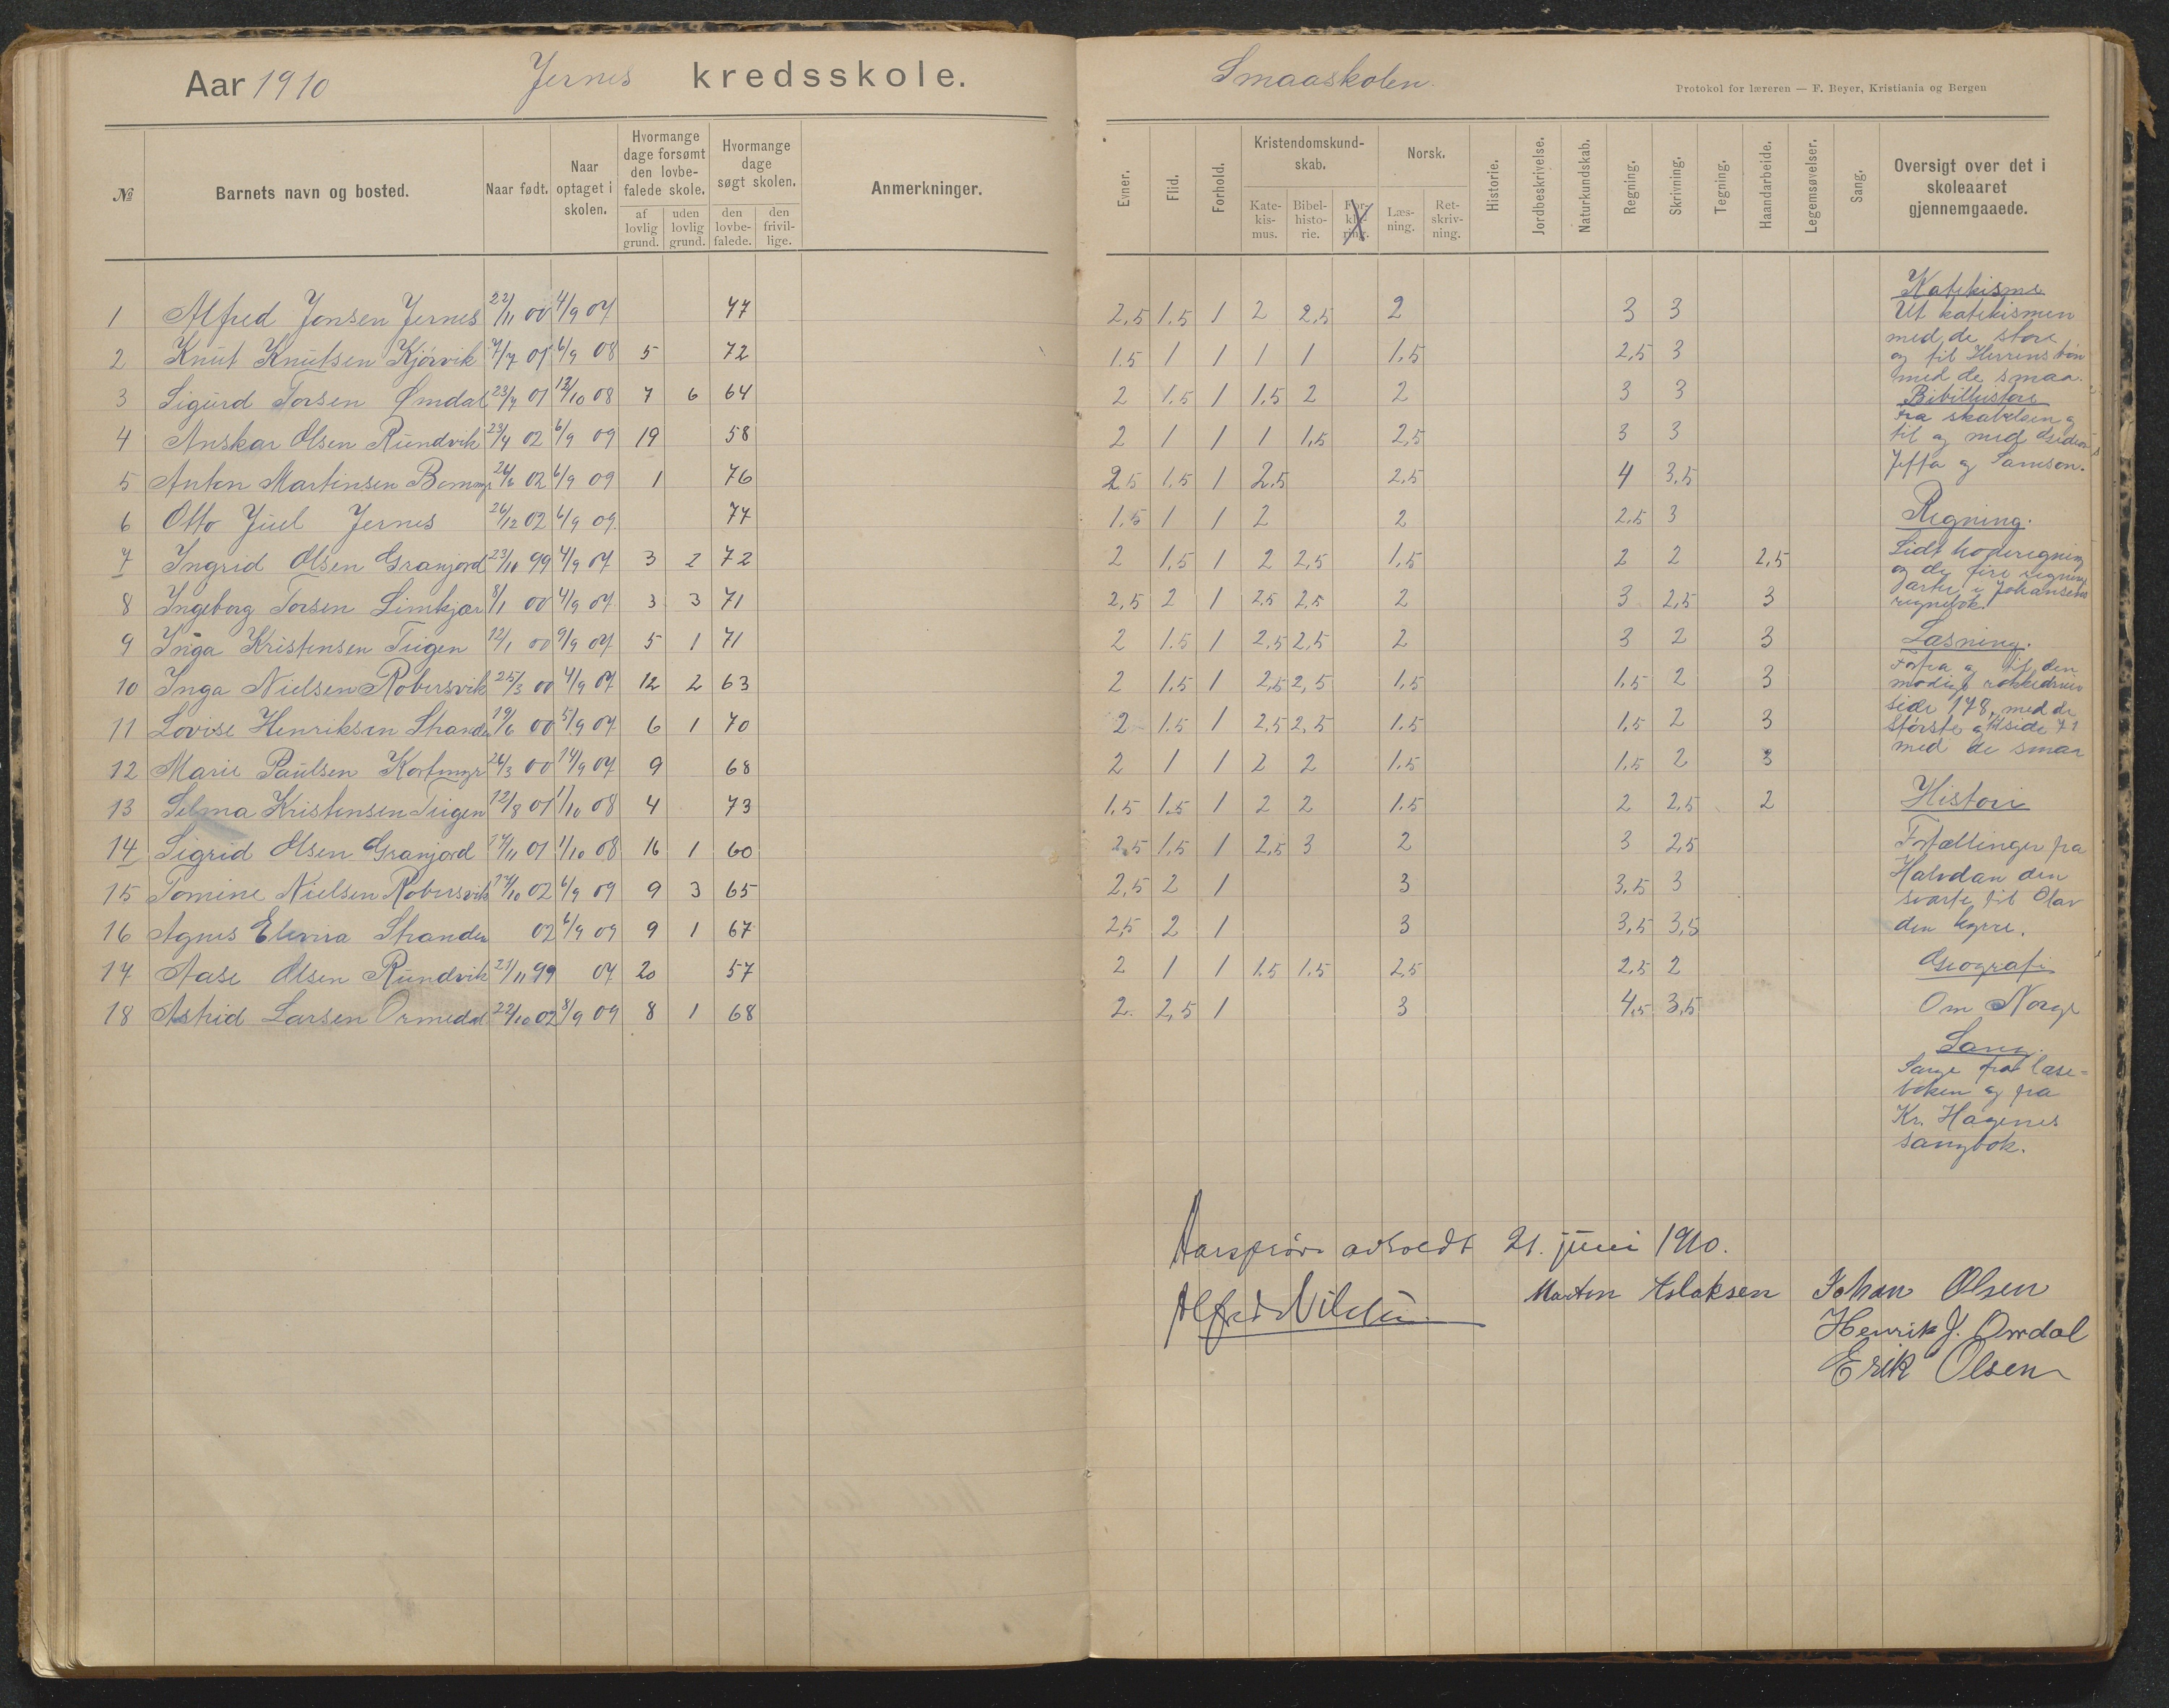 Aar 1910 Jernes kredsskole.
Smaaskolen.
Protokol for læreren — F. Beyer, Kristiania og Bergen
№ Barnets navn og bosted. Naar født. Naar optaget i skolen. Hvormange dage forsømt den lovbefalede skole. af lovlig grund. uden lovlig grund. Hvormange dage søgt skolen. den lovbefalede. den frivillige. Anmerkninger.
Evner. Flid. Forhold. Kristendomskundskab. Katekismus. Bibelhistorie. Forklaring. Norsk. Læsning. Retskrivning. Historie. Jordbeskrivelse. Naturkundskab. Regning. Skrivning. Tegning. Haandarbeide. Legemsøvelser. Sang. Oversigt over det i skoleaaret gjennemgaaede.
1 Alfred Jonsen Jernes 22/11 00 4/9 07 77 2,5 1.5 1 2 2,5 2 3 3
2 Knut Knutsen Kjørvik 7/7 01 6/9 08 5 72 1.5 1 1 1 1 1,5 2,5 3
3 Sigurd Torsen Ømdal 23/7 01 12/10 08 7 6 64 2 1.5 1 1.5 2 2 3 3
4 Anskar Olsen Rundvik 23/4 02 6/9 09 19 58 2 1 1 1 1,5 2,5 3 3
5 Anton Martinsen 26/6 02 6/9 09 1 76 2,5 1.5 1 2,5 2,5 4 3,5
6 Otto Juel Jernes 26/12 02 6/9 09 77 1,5 1 1 2 2 2,5 3
7 Ingrid Olsen Granjord 23/10 99 4/9 07 3 2 72 2 1,5 1 2 2,5 1,5 2 2 2,5
8 Ingeborg Torsen Limkjær 8/1 00 4/9 07 3 3 71 2,5 2 1 2,5 2,5 2 3 2,5 3
9 Inga Kristensen Tiigen 12/1 00 9/9 07 5 1 71 2 1.5 1 2,5 2,5 2 3 2 3
10 Inga Nielsen Robersvik 25/3 00 4/9 07 12 2 63 2 1,5 1 2,5 2,5 1,5 1,5 2 3
11 Lovise Henriksen Strande 19/6 00 5/9 07 6 1 70 2 1.5 1 2,5 2,5 1.5 1,5 2 3
12 Marie Paulsen Kortmyr 26/3 00 14/9 07 9 68 2 1 1 2 2 1.5 1.5 2 3
13 Selma Kristensen Tiigen 12/8 01 1/10 08 4 73 1.5 1.5 1 2 2 1.5 2 2,5 2
14 Sigrid Olsen Granjord 17/11 01 1/10 08 16 1 60 2,5 1.5 1 2,5 3 2 3 2,5
15 Tomine Nielsen Robersvik 17/10 02 6/9 09 9 3 65 2,5 2 1 3 3,5 3
16 Agnes Strander 02 6/9 09 9 1 67 2,5 2 1 3 3,5 3,5
17 Aase Olsen Rundvik 21/11 99 07 20 57 2 1 1 1.5 1.5 2,5 2,5 2
18 Astrid Larsen Ormedal 22/10 02 8/9 09 8 1 68 2. 2,5 1 3 4,5 3,5
Katekisme
Ut katekismen
med de store
og til Herrens bøn
med de smaa.
Bibelhistore
Fra skabelsen og
til og med Gideon
Jefta og Samson.
Regning.
Lidt hoderegning
og de fire regnings
arter i Johansens
regnebok.
Læsning.
Forfra og til den
modige
side 178, med de
største og til side 71
med de smaa
Histori
Fortællinger fra
Halvdan den
svarte til Olav
den kyrre.
Geografi
Om Norge
Sang.
Sange fra læse=
boken og fra
Kr. Hagenes
sangbok.
Aarsprøve avholdt 21. juni 1910.
Morten Aslaksen Johan Olsen
Henrik J. Omdal
Erik Olsen